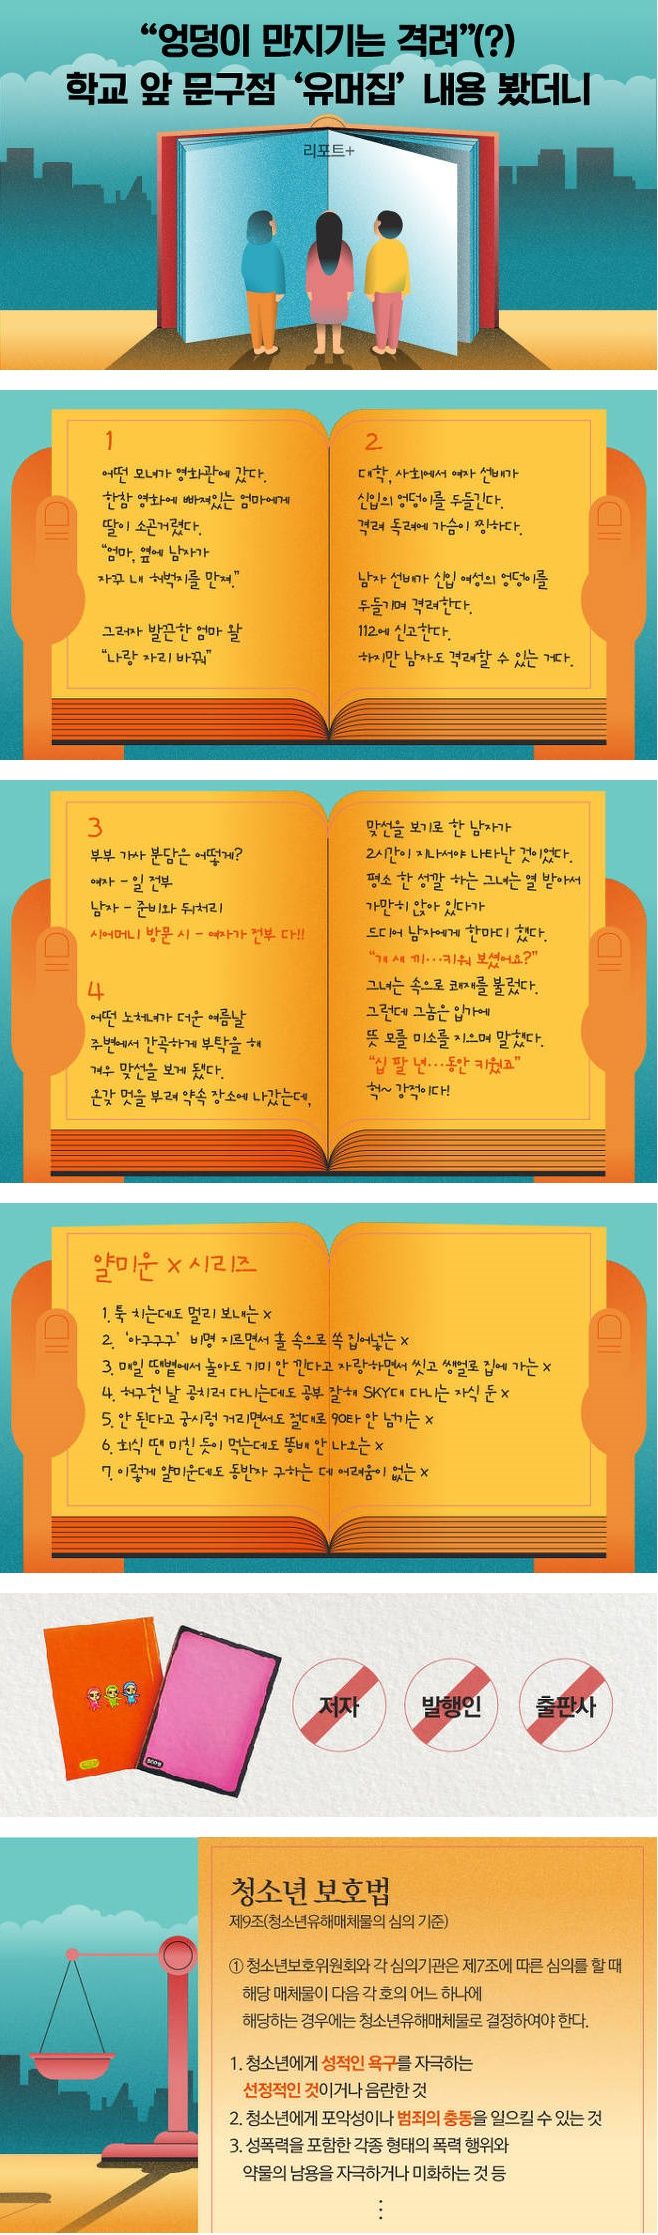 “엉덩이 만지기는 격려”(?)
학교 앞 문구점 ‘유머집’ 내용 봤더니
리포트+
1
어떤 모녀가 영화관에 갔다.
한참 영화에 빠져있는 엄마에게
딸이 소곤거렸다.
“엄마, 옆에 남자가
자꾸 내 허벅지를 만져.”
그러자 발끈한 엄마 왈
“나랑 자리 바꿔”
2
대학, 사회에서 여자 선배가
신입의 엉덩이를 두들긴다.
격려 독려에 가슴이 찡하다.
남자 선배가 신입 여성의 엉덩이를
두들기며 격려한다.
112에 신고한다.
하지만 남자도 격려할 수 있는 거다.
3
부부 가사 분담은 어떻게?
여자 - 일 전부
남자 - 준비와 뒤처리
시어머니 방문 시 - 여자가 전부 다!!
4
어떤 노처녀가 더운 여름날
주변에서 간곡하게 부탁을 해
겨우 맞선을 보게 됐다.
온갖 멋을 부려 약속 장소에 나갔는데,
맞선을 보기로 한 남자가
2시간이 지나서야 나타난 것이었다.
평소 한 성깔 하는 그녀는 열 받아서
가만히 앉아 있다가
드디어 남자에게 한마디 했다.
“개 새 끼…키워 보셨어요?”
그녀는 속으로 쾌재를 불렀다.
그런데 그놈은 입가에
뜻 모를 미소를 지으며 말했다.
“십 팔 년…동안 키웠죠”
헉~ 강적이다!
얄미운 x 시리즈
1. 툭 치는데도 멀리 보내는 x
2. ‘아구구구’ 비명 지르면서 홀 속으로 쏙 집어넣는 x
3. 매일 땡볕에서 놀아도 기미 안 낀다고 자랑하면서 씻고 쌩얼로 집에 가는 x
4. 허구헌 날 공치러 다니는데도 공부 잘해 SKY대 다니는 자식 둔 x
5. 안 된다고 궁시렁 거리면서도 절대로 90타 안 넘기는 x
6. 회식 땐 미친 듯이 먹는데도 똥배 안 나오는 x
7. 이렇게 얄미운데도 동반자 구하는 데 어려움이 없는 x
저자
발행인
출판사
청소년 보호법
제9조(청소년유해매체물의 심의 기준)
① 청소년보호위원회와 각 심의기관은 제7조에 따른 심의를 할 때
해당 매체물이 다음 각 호의 어느 하나에
해당하는 경우에는 청소년유해매체물로 결정하여야 한다.
1. 청소년에게 성적인 욕구를 자극하는
선정적인 것이거나 음란한 것
2. 청소년에게 포악성이나 범죄의 충동을 일으킬 수 있는 것
3. 성폭력을 포함한 각종 형태의 폭력 행위와
약물의 남용을 자극하거나 미화하는 것 등
⋮